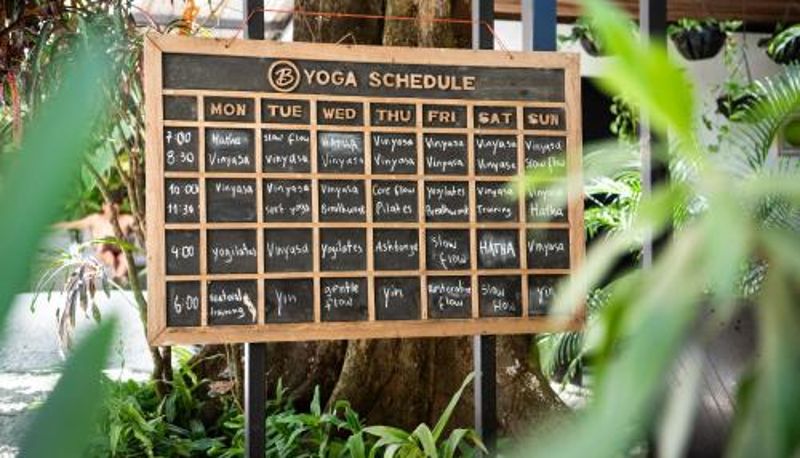 B YOGA SCHEDULE
MON TUE WED THU FRI SAT SUN
7:00 Hatha slow flow HATHA Vinyasa Vinyasa Vinyasa Vinyasa
8:30 Vinyasa Vinyasa Vinyasa Vinyasa Vinyasa Vinyasa Slow flow
10:00 Vinyasa Vinyasa Vinyasa Core flow Yogilates Vinyasa Vinyasa
11:30 surf yoga Breathwork Pilates Breathwork Training Hatha
4:00 yogilates Vinyasa Yogilates Ashtanga slow flow HATHA Vinyasa
6:00 training Yin gentle flow Yin Restorative flow Slow flow Yin